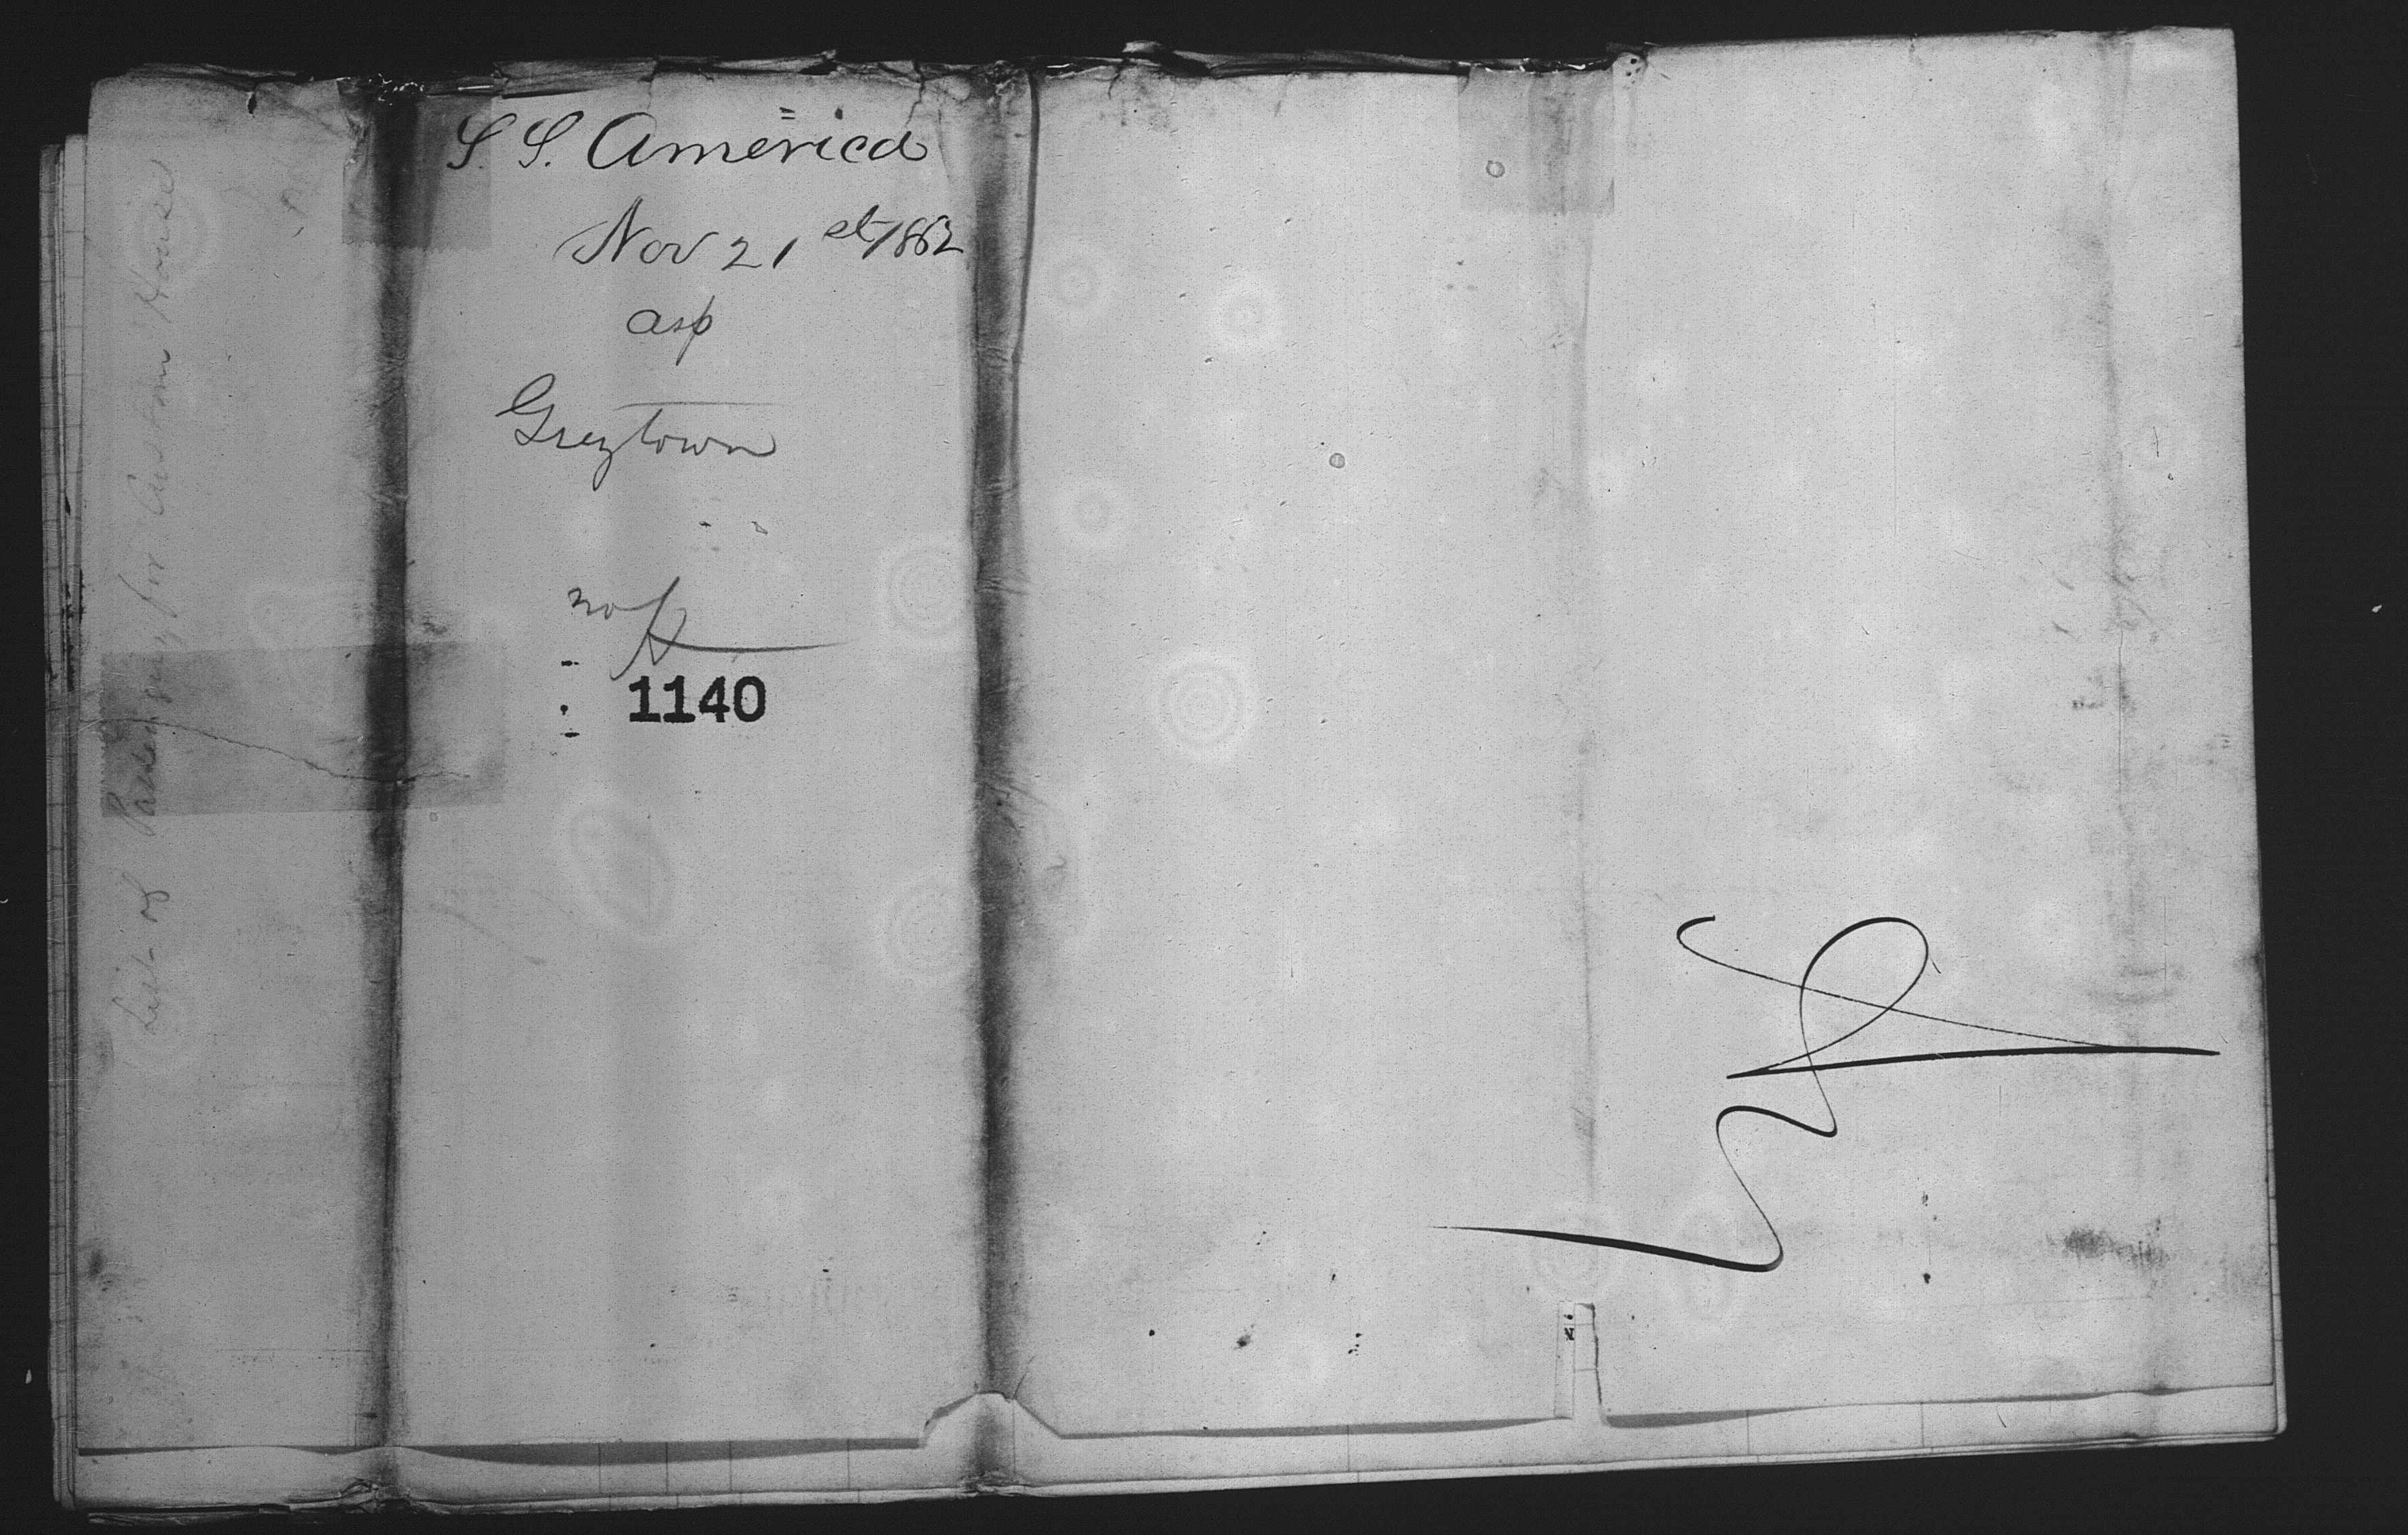 S. S. America
Nov 21 st/1862
asp
Greytown
no
1140
List of Passengers for Custom House